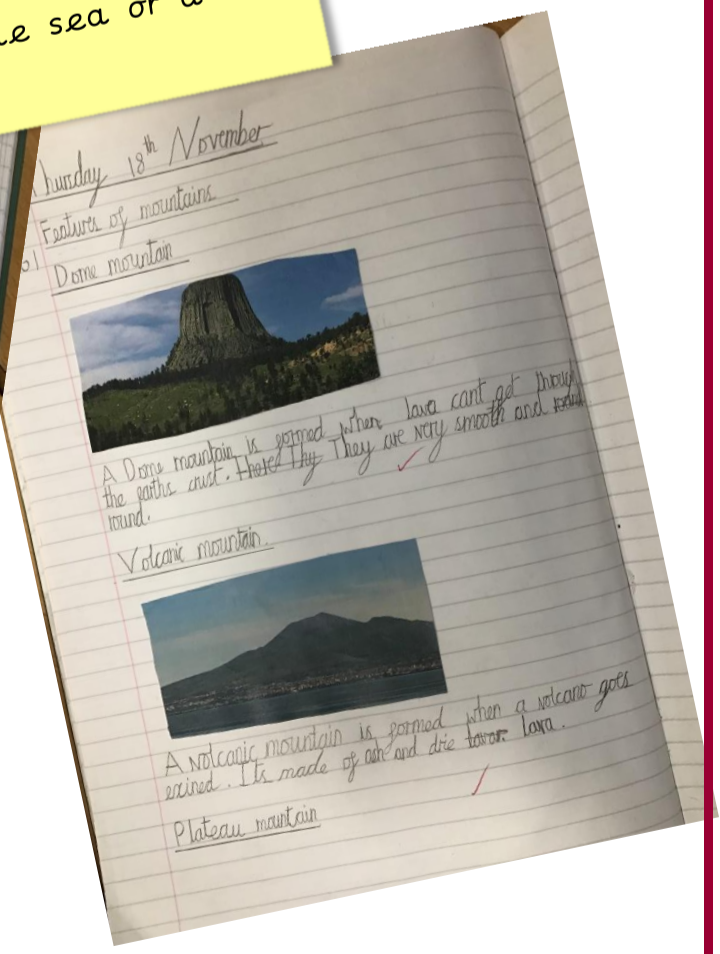 e sea or a
hursday 18th November
Features of mountains
o)
Dome mountain
A Dome mountain is formed when lava cant get through
the earths crust. There Thy They are very smooth and
round.
Volcanic mountain.
A volcanic mountain is formed when a volcano goes
exined. Its made of ash and drie lava.
Plateau mountain